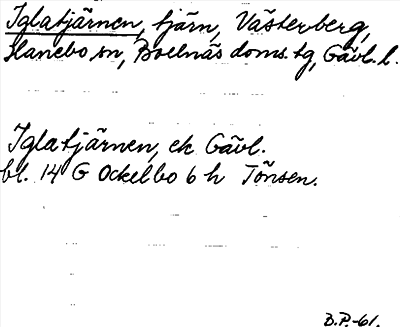 Iglatjärnen, tjärn, Västerberg,
Hanebo sn, Bollnäs doms. tg, Gävl. l.
Iglatjärnen, ek Gävl.
bl. 14 G Ockelbo 6 h Tönsen.
B.P.-61.